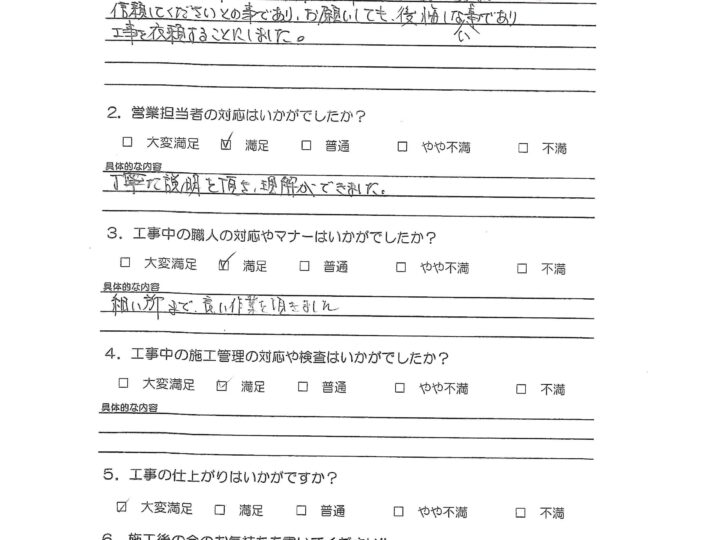 信頼してくださいとの事であり、お願いしても、後悔しない事であり
工事を依頼することにしました。
2．営業担当者の対応はいかがでしたか？
□ 大変満足 ☑ 満足 □ 普通 □ やや不満 □ 不満
具体的な内容
丁寧な説明を頂き、理解ができました。
3．工事中の職人の対応やマナーはいかがでしたか？
□ 大変満足 ☑ 満足 □ 普通 □ やや不満 □ 不満
具体的な内容
細い所まで、良い作業を頂きました
4．工事中の施工管理の対応や検査はいかがでしたか？
□ 大変満足 ☑ 満足 □ 普通 □ やや不満 □ 不満
具体的な内容
5．工事の仕上がりはいかがですか？
☑ 大変満足 □ 満足 □ 普通 □ やや不満 □ 不満
6．施工後の今のお気持ちを書いてください!!